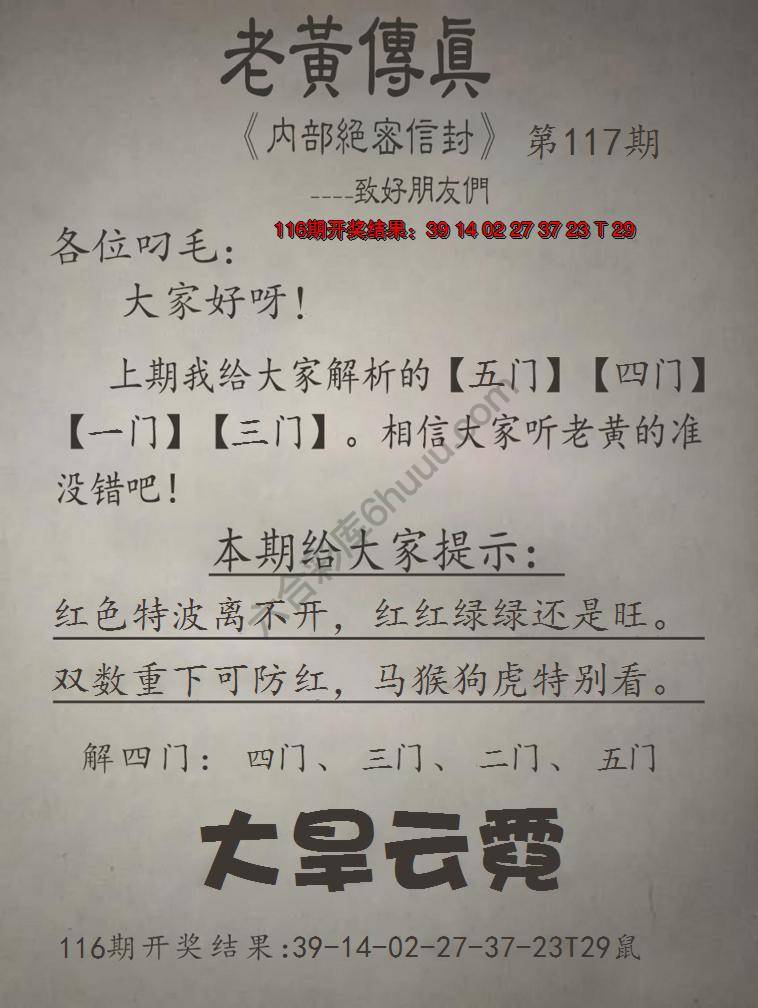 老黃傳眞
《内部絕密信封》 第117期
----致好朋友們
116期开奖结果：39 14 02 27 37 23 T 29
各位叼毛：
大家好呀！
上期我给大家解析的【五门】【四门】
【一门】【三门】。相信大家听老黄的准
没错吧！
本期给大家提示：
红色特波离不开，红红绿绿还是旺。
双数重下可防红，马猴狗虎特别看。
解四门： 四门、三门、二门、五门
大旱云霓
116期开奖结果:39-14-02-27-37-23T29鼠
六合彩库6huuu.com